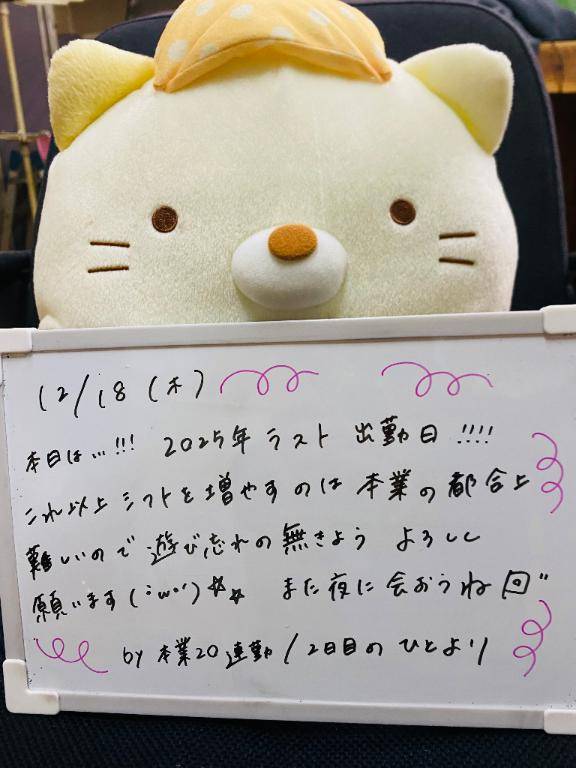 12/18 (木)
本日は...!!! 2025年 ラスト 出勤日 !!!!
これ以上 シフトを 増やすのは 本業の 都合上
難しいので 遊び忘れの 無きよう よろしく
願います (:'ω'') ☆☆ また夜に 会おうね 回"
by 本業20連勤 / 2日目の ひとより